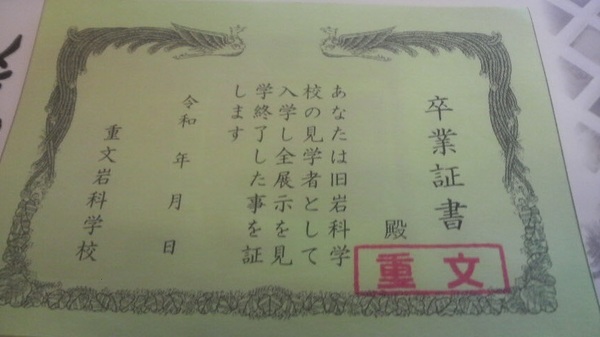 卒業証書
殿
あなたは旧岩科学
校の見学者として
入学し全展示を見
学終了した事を証
します
令和 年 月 日
重文岩科学校
重文